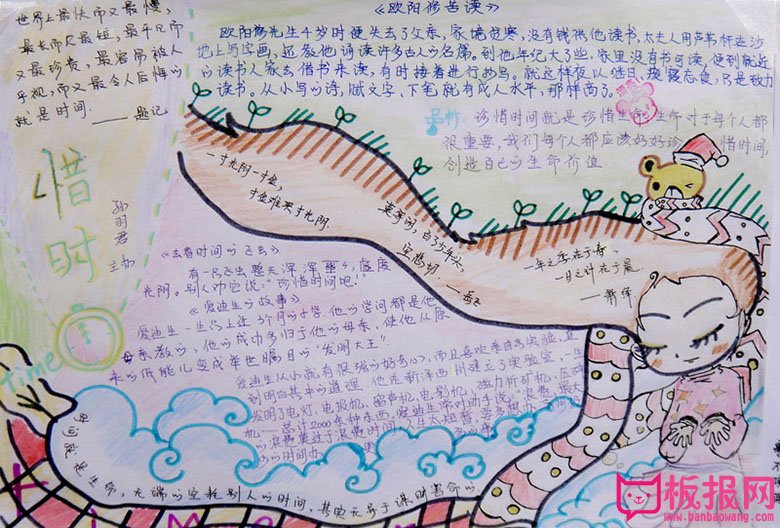 世界上最快而又最慢，
最长而又最短，最平凡而
又最珍贵，最容易被人
忽视，而又最令人后悔的
就是时间．
——题记
《欧阳修苦读》
欧阳修先生四岁时便失去了父亲，家境贫寒，没有钱供他读书，太夫人用芦苇杆在沙
地上写字画，还教他诵读许多古人的名篇。到他年纪大了些，家里没有书可读，便到就近
的读书人家去借书来读，有时接着进行抄写。就这样夜以继日，废寝忘食，只是致力
读书。从小写的诗，赋文字，下笔就有成人水平，那样高了。
珍惜时间就是珍惜生命，生命对于每个人都
很重要，我们每个人都应该好好珍惜时间，
创造自己的生命价值
惜时
孙羽君
主办
一寸光阴一寸金，
寸金难买寸光阴．
莫等闲，白了少年头，
空悲切．——岳飞
一年之季在于春，
一日之计在于晨．
——萧绎
有一只飞虫整天浑浑噩噩，虚度
光阴。别人劝它说："珍惜时间吧！"
《爱迪生的故事》
爱迪生一生只上过3个月的小学，他的学问都是他
母亲教的，他的成功多归于他的母亲，使他从原
来的低能儿变成举世瞩目的"发明大王"
爱迪生从小就有很强的好奇心，而且喜欢亲自去实验，直
到明白其中的道理，他在新泽西州建立了实验室，一生
发明了电灯，电报机，留声机，电影机，磁力析矿机，压碎
机……总计2000余种东西。爱迪生常对助手说："浪费，最大
的浪费莫过于浪费时间了
Time
时间就是生命，无端的空耗别人的时间，其实无异于谋财害命的
板报网
www.banbaowang.com